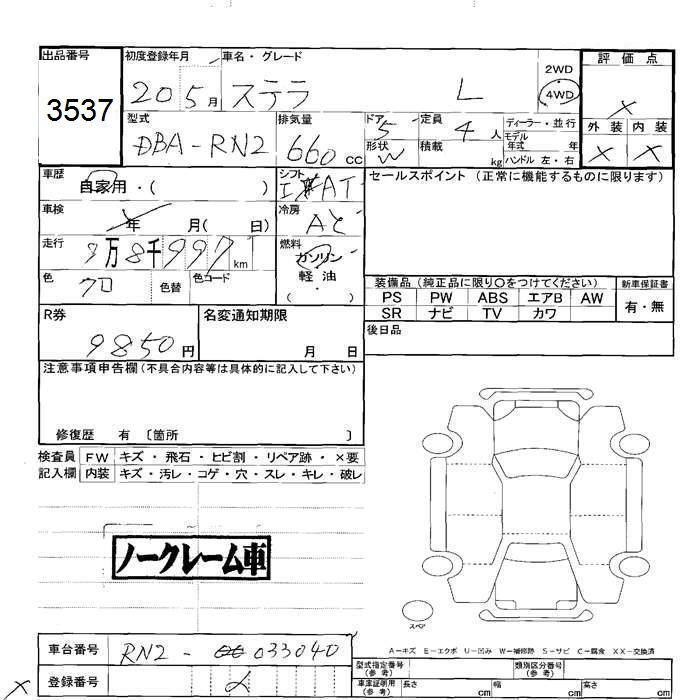 出品番号
3537
初度登録年月 車名・グレード
20 5月 ステラ L
2WD
4WD
評価点
×
外装 内装
× ×
型式
DBA-RN2
排気量
660 cc
ドア 5
形状 W
定員 4人
積載 kg
ディーラー・並行
モデル年式 年
ハンドル 左・右
車歴
自家用・( )
シフト
AT
セールスポイント (正常に機能するものに限ります)
車検
年 月( 日)
冷房
AC
走行
3万8千997km
燃料
ガソリン
軽・油
( )
色
クロ
色替
色コード
装備品 (純正品に限り○をつけてください)
PS PW ABS エアB AW
SR ナビ TV カワ
新車保証書
有・無
R券
9850円
名変通知期限
月 日
後日品
注意事項申告欄(不具合内容等は具体的に記入して下さい)
修復歴 有 〔箇所 〕
検査員 FW キズ・飛石・ヒビ割・リペア跡・×要
記入欄 内装 キズ・汚レ・コゲ・穴・スレ・キレ・破レ
ノークレーム車
スペア
A=キズ E=エクボ U=凹み W=補修跡 S=サビ C=腐食 XX=交換済
車台番号
RN2-033040
登録番号
×
型式指定番号
(参考)
類別区分番号
(参考)
車庫証明用
(参考)
長さ cm 幅 cm 高さ cm